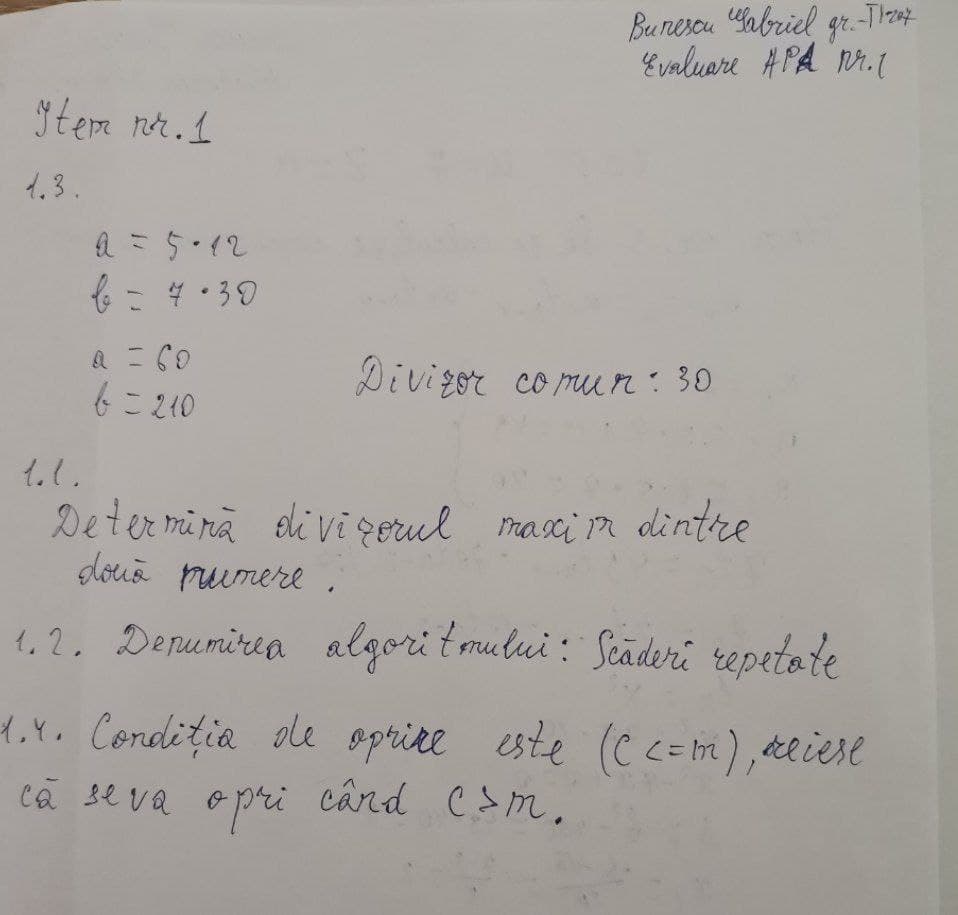 Bunescu Gabriel gr.-TI-207
Evaluare APA Nr.1
Item nr.1
1.3.
a = 5·12
b = 7·30
a = 60
b = 210
Divizor comun: 30
1.1.
Determină divizorul maxim dintre
două numere.
1.2. Denumirea algoritmului: Scăderi repetate
1.4. Condiția de oprire este (C <= m), reiese
că se va opri când C > m.